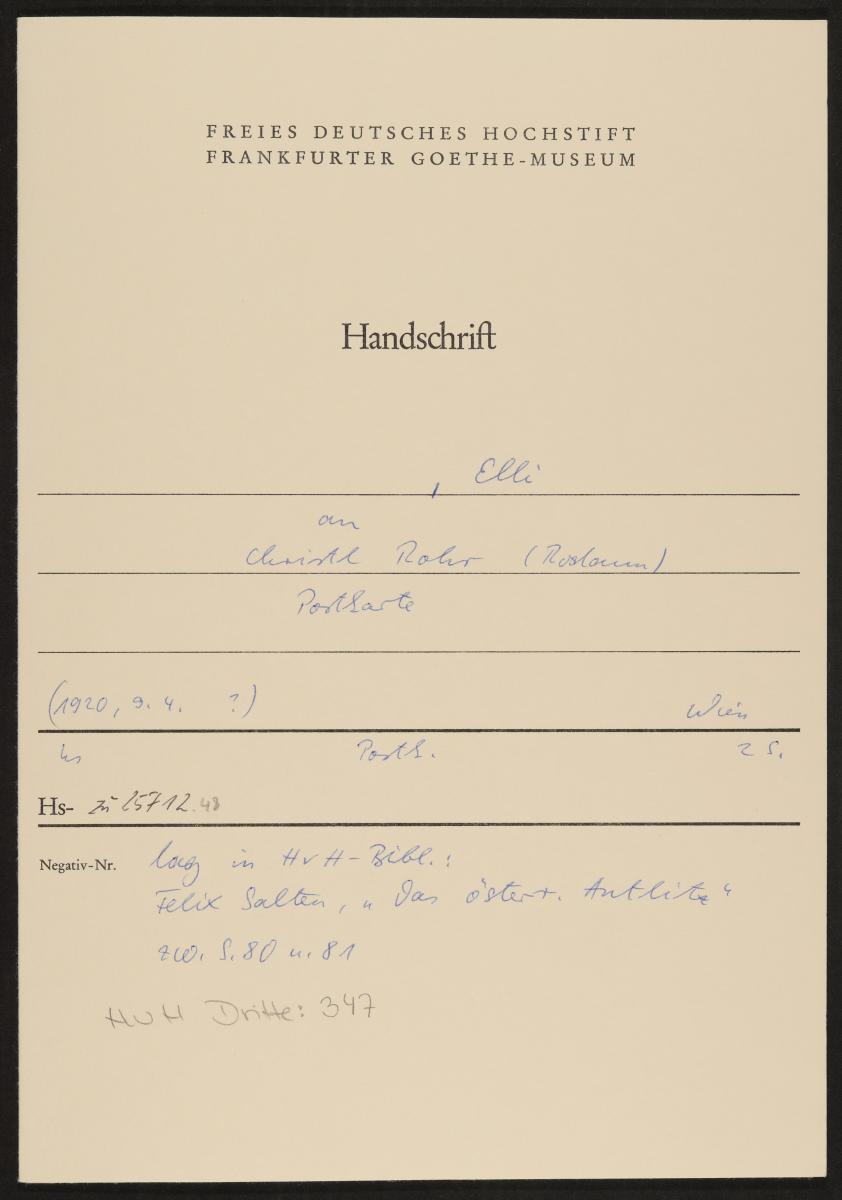 FREIES DEUTSCHES HOCHSTIFT
FRANKFURTER GOETHE-MUSEUM
Handschrift
, Elli
an
Christl Rohr (Rodaun)
Postkarte
(1920, 9. 4. ?) Wien
hs Postk. 2 S.
Hs- zu 25712.48
Negativ-Nr. lag in HvH-Bibl.:
Felix Salten, „Das österr. Antlitz“
zw. S. 80 u. 81
HvH Dritte: 347